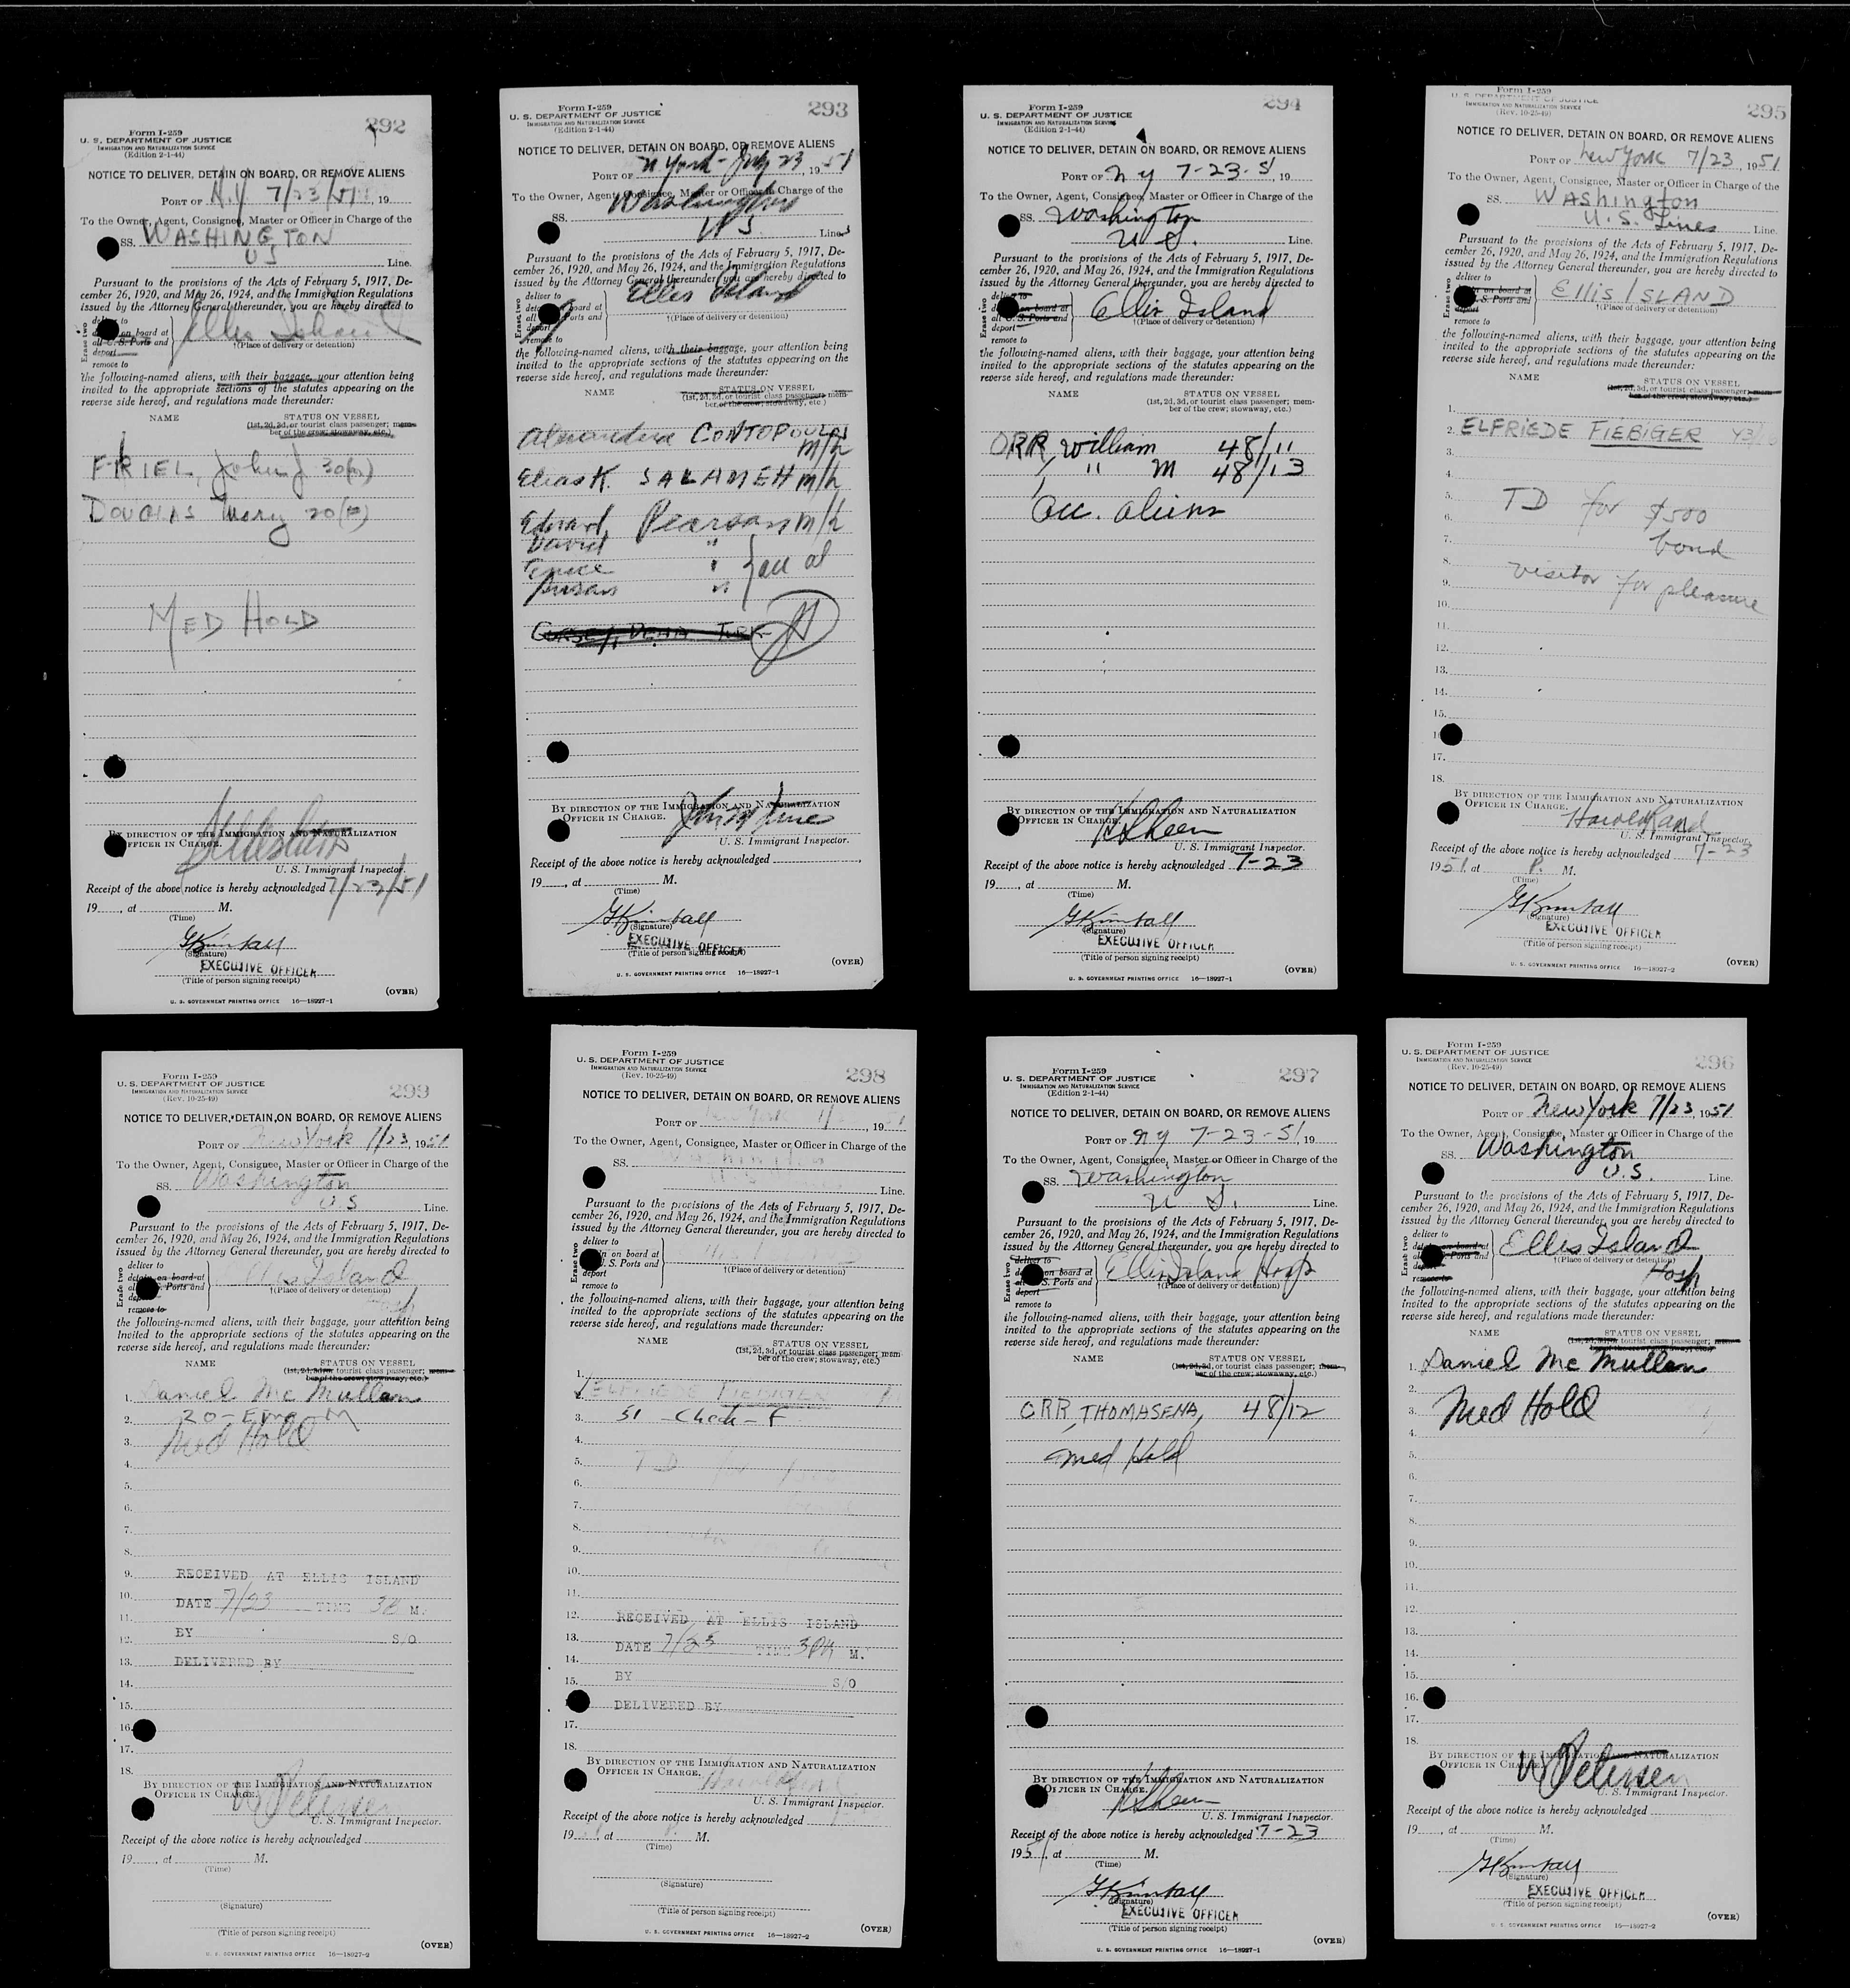 292
Form I-259
U. S. DEPARTMENT OF JUSTICE
IMMIGRATION AND NATURALIZATION SERVICE
(Edition 2-1-44)
NOTICE TO DELIVER, DETAIN ON BOARD, OR REMOVE ALIENS
PORT OF N.Y 7/23/51, 19
To the Owner, Agent, Consignee, Master or Officer in Charge of the
SS. WASHINGTON
US Line.
Pursuant to the provisions of the Acts of February 5, 1917, De-
cember 26, 1920, and May 26, 1924, and the Immigration Regulations
issued by the Attorney General thereunder, you are hereby directed to
Erase two
deliver to
on board at
all U. S. Ports and
deport
remove to
Ellis Island
†(Place of delivery or detention)
the following-named aliens, with their baggage, your attention being
invited to the appropriate sections of the statutes appearing on the
reverse side hereof, and regulations made thereunder:
NAME STATUS ON VESSEL
(1st, 2d, 3d, or tourist class passenger; mem-
ber of the crew; stowaway, etc.)
FRIEL, John J. 30(m)
DOUGLAS Mary 20(F)
MED HOLD
BY DIRECTION OF THE IMMIGRATION AND NATURALIZATION
OFFICER IN CHARGE.
U. S. Immigrant Inspector.
Receipt of the above notice is hereby acknowledged 7/23/51
19____, at ____ M.
(Time)
GKimball
(Signature)
EXECUTIVE OFFICER
(Title of person signing receipt)
(OVER)
U. S. GOVERNMENT PRINTING OFFICE 16—18927-1
293
Form I-259
U. S. DEPARTMENT OF JUSTICE
IMMIGRATION AND NATURALIZATION SERVICE
(Edition 2-1-44)
NOTICE TO DELIVER, DETAIN ON BOARD, OR REMOVE ALIENS
PORT OF N York - July 23, 1951
To the Owner, Agent, Consignee, Master or Officer in Charge of the
SS. Washington
US Lines
Pursuant to the provisions of the Acts of February 5, 1917, De-
cember 26, 1920, and May 26, 1924, and the Immigration Regulations
issued by the Attorney General thereunder, you are hereby directed to
Erase two
deliver to
board at
all Ports and
deport
remove to
Ellis Island
†(Place of delivery or detention)
the following-named aliens, with their baggage, your attention being
invited to the appropriate sections of the statutes appearing on the
reverse side hereof, and regulations made thereunder:
NAME STATUS ON VESSEL
(1st, 2d, 3d, or tourist class passenger; mem-
ber of the crew; stowaway, etc.)
Alexandra CONTOPOULOS
m/h
Elias K. SALAMEH m/h
Edward Pearson m/h
David "
"
Susan " } acc al
BY DIRECTION OF THE IMMIGRATION AND NATURALIZATION
OFFICER IN CHARGE.
U. S. Immigrant Inspector.
Receipt of the above notice is hereby acknowledged
19____, at ____ M.
(Time)
GKimball
(Signature)
EXECUTIVE OFFICER
(Title of person signing receipt)
(OVER)
U. S. GOVERNMENT PRINTING OFFICE 16—18927-1
294
Form I-259
U. S. DEPARTMENT OF JUSTICE
IMMIGRATION AND NATURALIZATION SERVICE
(Edition 2-1-44)
NOTICE TO DELIVER, DETAIN ON BOARD, OR REMOVE ALIENS
PORT OF N Y 7-23-51, 19
To the Owner, Agent, Consignee, Master or Officer in Charge of the
SS. Washington
U.S. Line.
Pursuant to the provisions of the Acts of February 5, 1917, De-
cember 26, 1920, and May 26, 1924, and the Immigration Regulations
issued by the Attorney General thereunder, you are hereby directed to
Erase two
deliver to
on board at
all U. S. Ports and
deport
remove to
Ellis Island
†(Place of delivery or detention)
the following-named aliens, with their baggage, your attention being
invited to the appropriate sections of the statutes appearing on the
reverse side hereof, and regulations made thereunder:
NAME STATUS ON VESSEL
(1st, 2d, 3d, or tourist class passenger; mem-
ber of the crew; stowaway, etc.)
ORR, William 48/11
, " M 48/13
Acc. aliens
BY DIRECTION OF THE IMMIGRATION AND NATURALIZATION
OFFICER IN CHARGE.
U. S. Immigrant Inspector.
Receipt of the above notice is hereby acknowledged 7-23
19____, at ____ M.
(Time)
GKimball
(Signature)
EXECUTIVE OFFICER
(Title of person signing receipt)
(OVER)
U. S. GOVERNMENT PRINTING OFFICE 16—18927-1
295
Form I-259
U. S. DEPARTMENT OF JUSTICE
IMMIGRATION AND NATURALIZATION SERVICE
(Rev. 10-25-49)
NOTICE TO DELIVER, DETAIN ON BOARD, OR REMOVE ALIENS
PORT OF New York 7/23, 1951
To the Owner, Agent, Consignee, Master or Officer in Charge of the
SS. WAShington
U.S. Lines Line.
Pursuant to the provisions of the Acts of February 5, 1917, De-
cember 26, 1920, and May 26, 1924, and the Immigration Regulations
issued by the Attorney General thereunder, you are hereby directed to
deliver to
on board at
S. Ports and
deport
remove to
Ellis ISLAND
†(Place of delivery or detention)
the following-named aliens, with their baggage, your attention being
invited to the appropriate sections of the statutes appearing on the
reverse side hereof, and regulations made thereunder:
NAME STATUS ON VESSEL
(1st, 2d, 3d, or tourist class passenger; mem-
ber of the crew; stowaway, etc.)
1.
2. ELFRIEDE FIEBIGER
3.
4.
5. TD for $500
6.
7. bond
8. visitor for pleasure
9.
10.
11.
12.
13.
14.
15.
17.
18.
BY DIRECTION OF THE IMMIGRATION AND NATURALIZATION
OFFICER IN CHARGE.
Harold Rand
U. S. Immigrant Inspector.
Receipt of the above notice is hereby acknowledged 7-23
1951, at P. M.
(Time)
GKimball
(Signature)
EXECUTIVE OFFICER
(Title of person signing receipt)
(OVER)
U. S. GOVERNMENT PRINTING OFFICE 16—18927-2
299
Form I-259
U. S. DEPARTMENT OF JUSTICE
IMMIGRATION AND NATURALIZATION SERVICE
(Rev. 10-25-49)
NOTICE TO DELIVER, DETAIN ON BOARD, OR REMOVE ALIENS
PORT OF New York 7/23, 1951
To the Owner, Agent, Consignee, Master or Officer in Charge of the
SS. Washington
U.S Line.
Pursuant to the provisions of the Acts of February 5, 1917, De-
cember 26, 1920, and May 26, 1924, and the Immigration Regulations
issued by the Attorney General thereunder, you are hereby directed to
Erase two
deliver to
detain on board at
Ports and
deport
remove to
Ellis Island
Hosp
†(Place of delivery or detention)
the following-named aliens, with their baggage, your attention being
invited to the appropriate sections of the statutes appearing on the
reverse side hereof, and regulations made thereunder:
NAME STATUS ON VESSEL
(1st, 2d, 3d, or tourist class passenger; mem-
ber of the crew; stowaway, etc.)
1. Daniel Mc Mullan
2. 20 - Eng - M
3. Med Hold
4.
5.
6.
7.
8.
9. RECEIVED AT ELLIS ISLAND
10. DATE 7/23 TIME 30 M.
11.
12. BY S/O
13. DELIVERED BY
14.
15.
16.
17.
18.
BY DIRECTION OF THE IMMIGRATION AND NATURALIZATION
OFFICER IN CHARGE.
W Petersen
U. S. Immigrant Inspector.
Receipt of the above notice is hereby acknowledged
19____, at ____ M.
(Time)
(Signature)
(Title of person signing receipt)
(OVER)
U. S. GOVERNMENT PRINTING OFFICE 16—18927-2
298
Form I-259
U. S. DEPARTMENT OF JUSTICE
IMMIGRATION AND NATURALIZATION SERVICE
(Rev. 10-25-49)
NOTICE TO DELIVER, DETAIN ON BOARD, OR REMOVE ALIENS
PORT OF New York, 1951
To the Owner, Agent, Consignee, Master or Officer in Charge of the
SS. Washington
Line.
Pursuant to the provisions of the Acts of February 5, 1917, De-
cember 26, 1920, and May 26, 1924, and the Immigration Regulations
issued by the Attorney General thereunder, you are hereby directed to
Erase two
deliver to
on board at
U. S. Ports and
deport
remove to
†(Place of delivery or detention)
the following-named aliens, with their baggage, your attention being
invited to the appropriate sections of the statutes appearing on the
reverse side hereof, and regulations made thereunder:
NAME STATUS ON VESSEL
(1st, 2d, 3d, or tourist class passenger; mem-
ber of the crew; stowaway, etc.)
1.
2. ELFRIEDE FIEBIGER
3. 51 - Chech - F
4.
5. TD
6.
7.
8.
9.
10.
11.
12. RECEIVED AT ELLIS ISLAND
13. DATE 7/23 TIME 3 PM M.
14.
15. BY S/O
DELIVERED BY
17.
18.
BY DIRECTION OF THE IMMIGRATION AND NATURALIZATION
OFFICER IN CHARGE.
Harold Rand
U. S. Immigrant Inspector.
Receipt of the above notice is hereby acknowledged
19____, at ____ M.
(Time)
(Signature)
(Title of person signing receipt)
(OVER)
U. S. GOVERNMENT PRINTING OFFICE 16—18927-2
297
Form I-259
U. S. DEPARTMENT OF JUSTICE
IMMIGRATION AND NATURALIZATION SERVICE
(Edition 2-1-44)
NOTICE TO DELIVER, DETAIN ON BOARD, OR REMOVE ALIENS
PORT OF NY 7-23-51, 19
To the Owner, Agent, Consignee, Master or Officer in Charge of the
SS. Washington
U.S. Line.
Pursuant to the provisions of the Acts of February 5, 1917, De-
cember 26, 1920, and May 26, 1924, and the Immigration Regulations
issued by the Attorney General thereunder, you are hereby directed to
Erase two
deliver to
on board at
all U. S. Ports and
deport
remove to
Ellis Island Hosp
†(Place of delivery or detention)
the following-named aliens, with their baggage, your attention being
invited to the appropriate sections of the statutes appearing on the
reverse side hereof, and regulations made thereunder:
NAME STATUS ON VESSEL
(1st, 2d, 3d, or tourist class passenger; mem-
ber of the crew; stowaway, etc.)
ORR, THOMASENA, 48/12
Med Hold
BY DIRECTION OF THE IMMIGRATION AND NATURALIZATION
OFFICER IN CHARGE.
U. S. Immigrant Inspector.
Receipt of the above notice is hereby acknowledged 7-23
1951, at ____ M.
(Time)
GKimball
(Signature)
EXECUTIVE OFFICER
(Title of person signing receipt)
(OVER)
U. S. GOVERNMENT PRINTING OFFICE 16—18927-1
296
Form I-259
U. S. DEPARTMENT OF JUSTICE
IMMIGRATION AND NATURALIZATION SERVICE
(Rev. 10-25-49)
NOTICE TO DELIVER, DETAIN ON BOARD, OR REMOVE ALIENS
PORT OF New York 7/23, 1951
To the Owner, Agent, Consignee, Master or Officer in Charge of the
SS. Washington
U.S. Line.
Pursuant to the provisions of the Acts of February 5, 1917, De-
cember 26, 1920, and May 26, 1924, and the Immigration Regulations
issued by the Attorney General thereunder, you are hereby directed to
Erase two
deliver to
detain on board at
all Ports and
deport
remove to
Ellis Island
Hosp
†(Place of delivery or detention)
the following-named aliens, with their baggage, your attention being
invited to the appropriate sections of the statutes appearing on the
reverse side hereof, and regulations made thereunder:
NAME STATUS ON VESSEL
(1st, 2d, 3d, or tourist class passenger; mem-
ber of the crew; stowaway, etc.)
1. Daniel Mc Mullan
2.
3. Med Hold
4.
5.
6.
7.
8.
9.
10.
11.
12.
13.
14.
15.
16.
17.
18.
BY DIRECTION OF THE IMMIGRATION AND NATURALIZATION
OFFICER IN CHARGE.
W Petersen
U. S. Immigrant Inspector.
Receipt of the above notice is hereby acknowledged
19____, at ____ M.
(Time)
GKimball
(Signature)
EXECUTIVE OFFICER
(Title of person signing receipt)
(OVER)
U. S. GOVERNMENT PRINTING OFFICE 16—18927-2